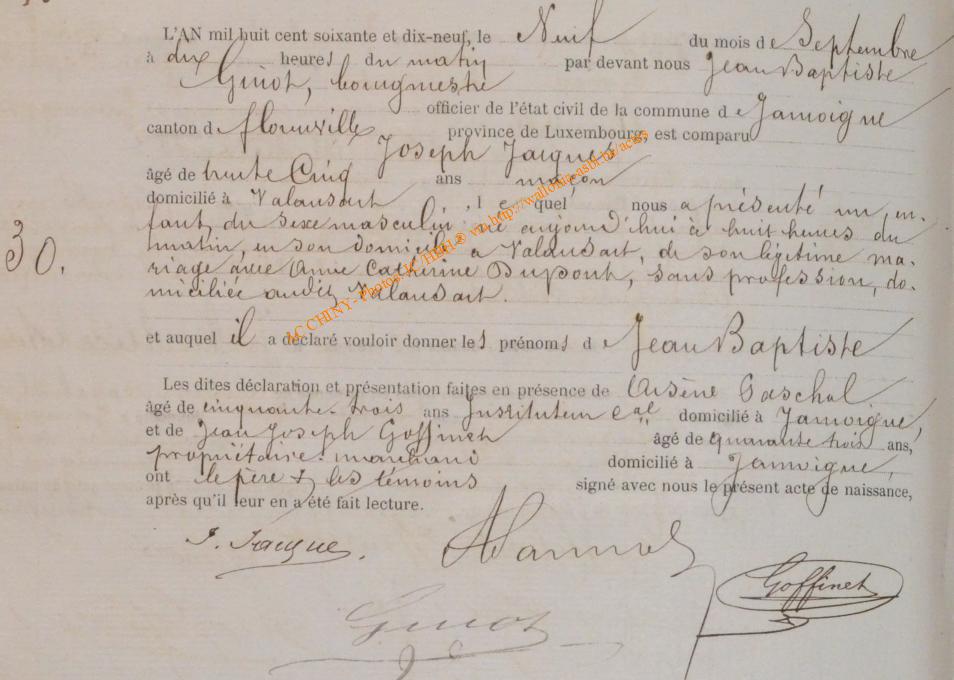 L'AN mil huit cent soixante et dix-neuf, le Neuf du mois de Septembre
à dix heures du matin par devant nous Jean Baptiste
Guiot, bourgmestre
officier de l'état civil de la commune de Jamoigne
canton de florenville province de Luxembourg, est comparu
Joseph Jacques
âgé de trente Cinq ans maçon
domicilié à Valansart, lequel nous a présenté un en-
fant du sexe masculin né aujourd'hui à huit heures du
matin, en son domicile à Valansart, de son légitime ma-
riage avec Anne Catherine Dupont, sans profession, do-
miciliée audit Valansart.
30.
et auquel il a déclaré vouloir donner les prénoms de Jean Baptiste
Les dites déclaration et présentation faites en présence de Arsène
âgé de cinquante-trois ans Instituteur cal domicilié à Jamoigne,
et de Jean Joseph Goffinet âgé de quarante trois ans,
propriétaire-marchand domicilié à Jamoigne
ont le père & les témoins signé avec nous le présent acte de naissance,
après qu'il leur en a été fait lecture.
J. Jacques.
Goffinet
Guiot
AC CHINY - Photos JC/HERI® via http://wallonia-asbl.be/actes